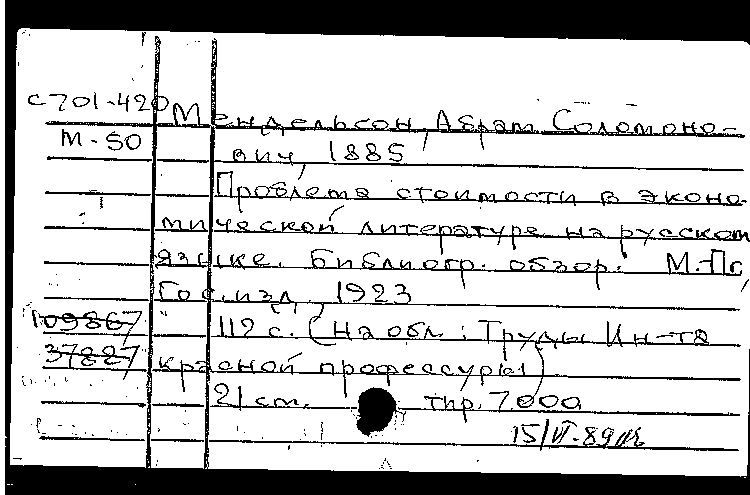 С701-420 Мендельсон, Абрам Соломоно-
М-50 вич, 1885
Проблема стоимости в эконо-
мической литературе на русском
языке. Библиогр. обзор. М.-Пг,
Гос. изд., 1923
109867 112 с. (На обл.: Труды Ин-та
37827 красной профессуры)
21 см. тир. 7.000
15/VI-89